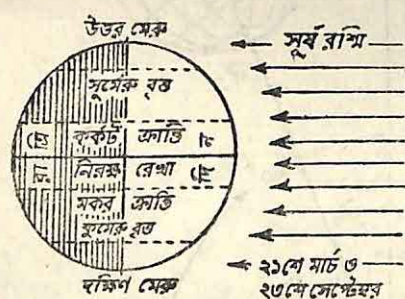 উত্তর মেরু
সূর্য রশ্মি
সুমেরু বৃত্ত
কর্কট ক্রান্তি
রাত্রি
দিন
নিরক্ষ রেখা
মকর ক্রান্তি
কুমেরু বৃত্ত
দক্ষিণ মেরু
২১শে মার্চ ও
২৩শে সেপ্টেম্বর